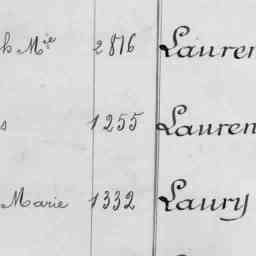 h Mie 2816 Lauren
s 1255 Lauren
Marie 1332 Laury